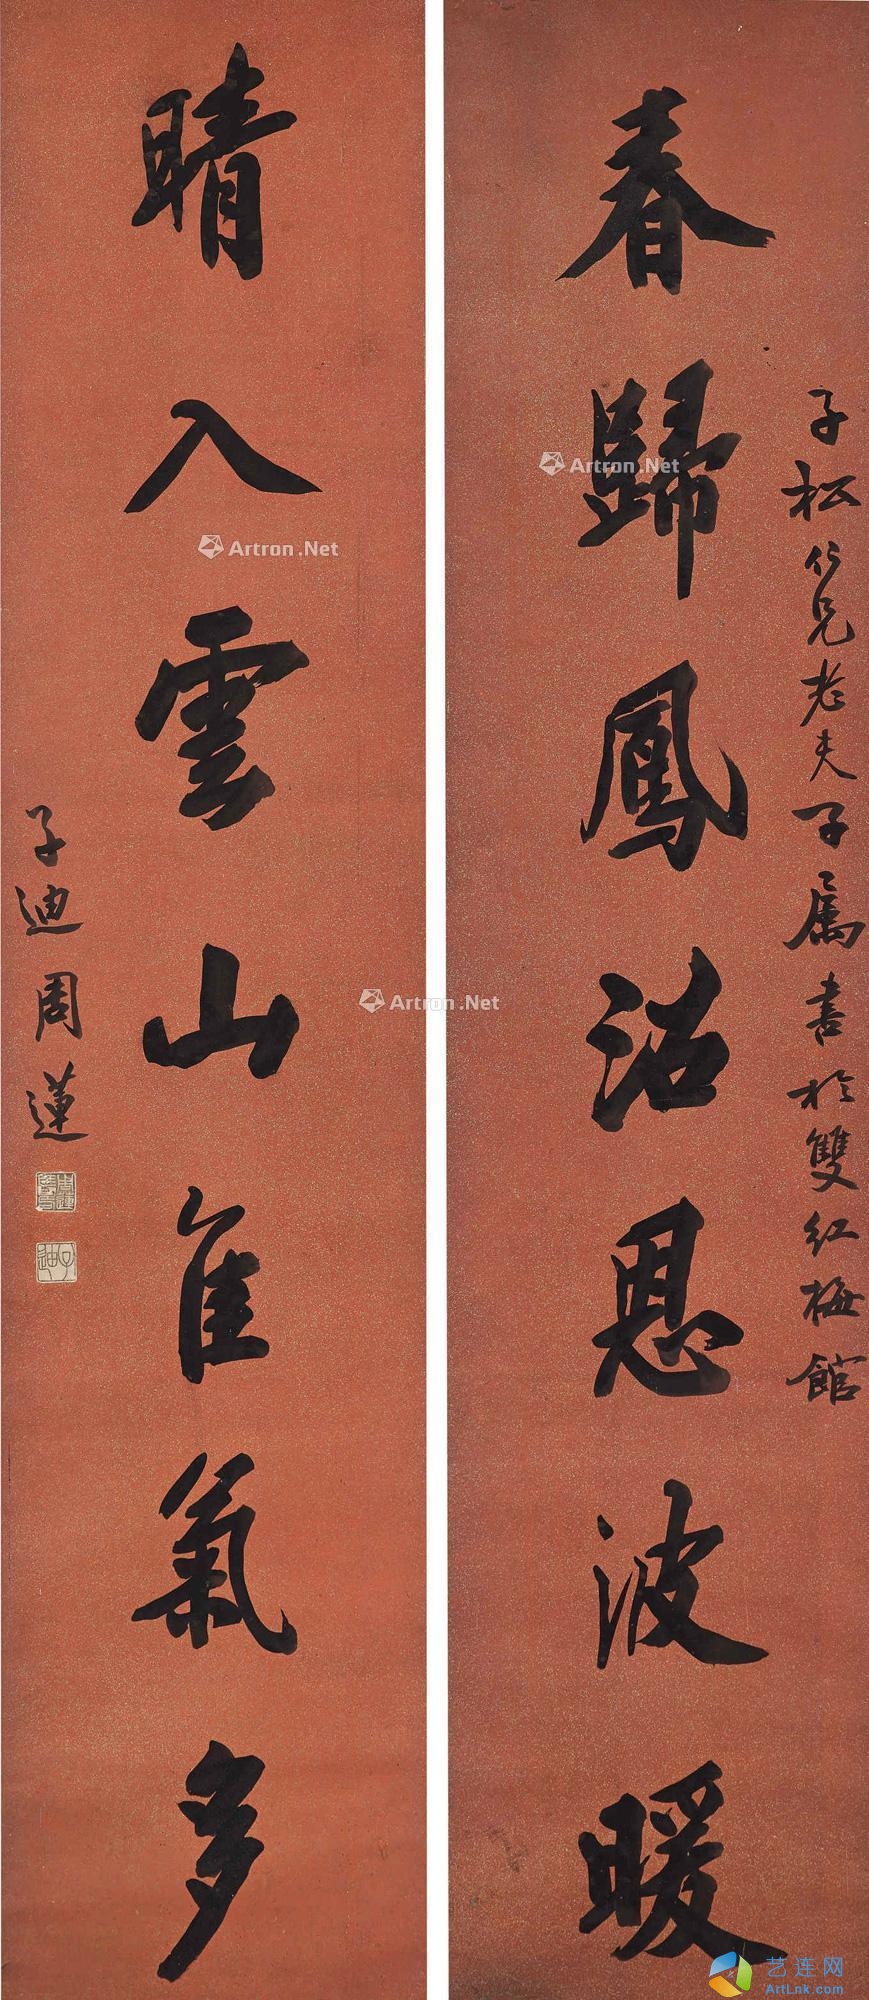 子松仁兄老夫子属書於雙紅梅館
春歸鳳沼恩波暖
晴入雲山佳氣多
子迪周蓮
子迪
Artron.Net
Artron.Net
Artron.Net
艺连网
ArtLnk.com